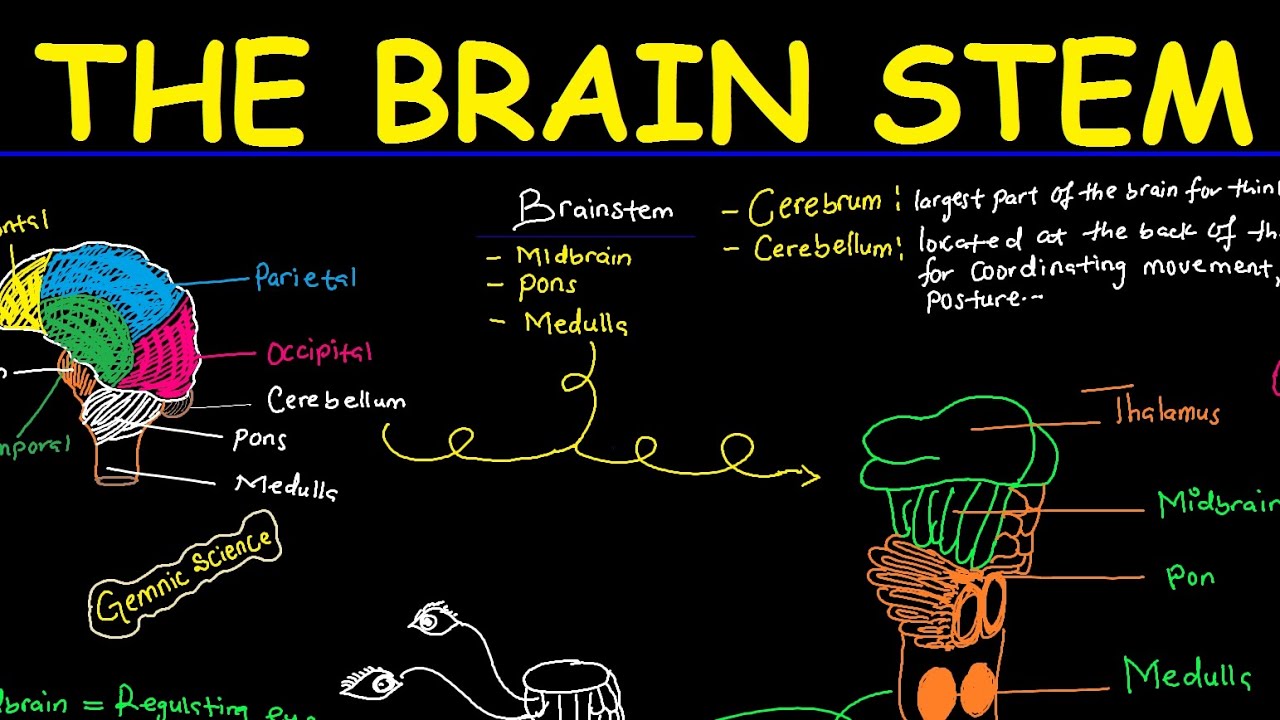 THE BRAIN STEM
Brainstem
- Midbrain
- Pons
- Medulla
- Cerebrum : largest part of the brain for thin
- Cerebellum : located at the back of th
for Coordinating movement,
Posture...
ntal
Parietal
Occipital
Cerebellum
Pons
Medulla
mporal
Gemnic Science
Thalamus
Midbrain
Pon
Medulla
brain = Regulating eye